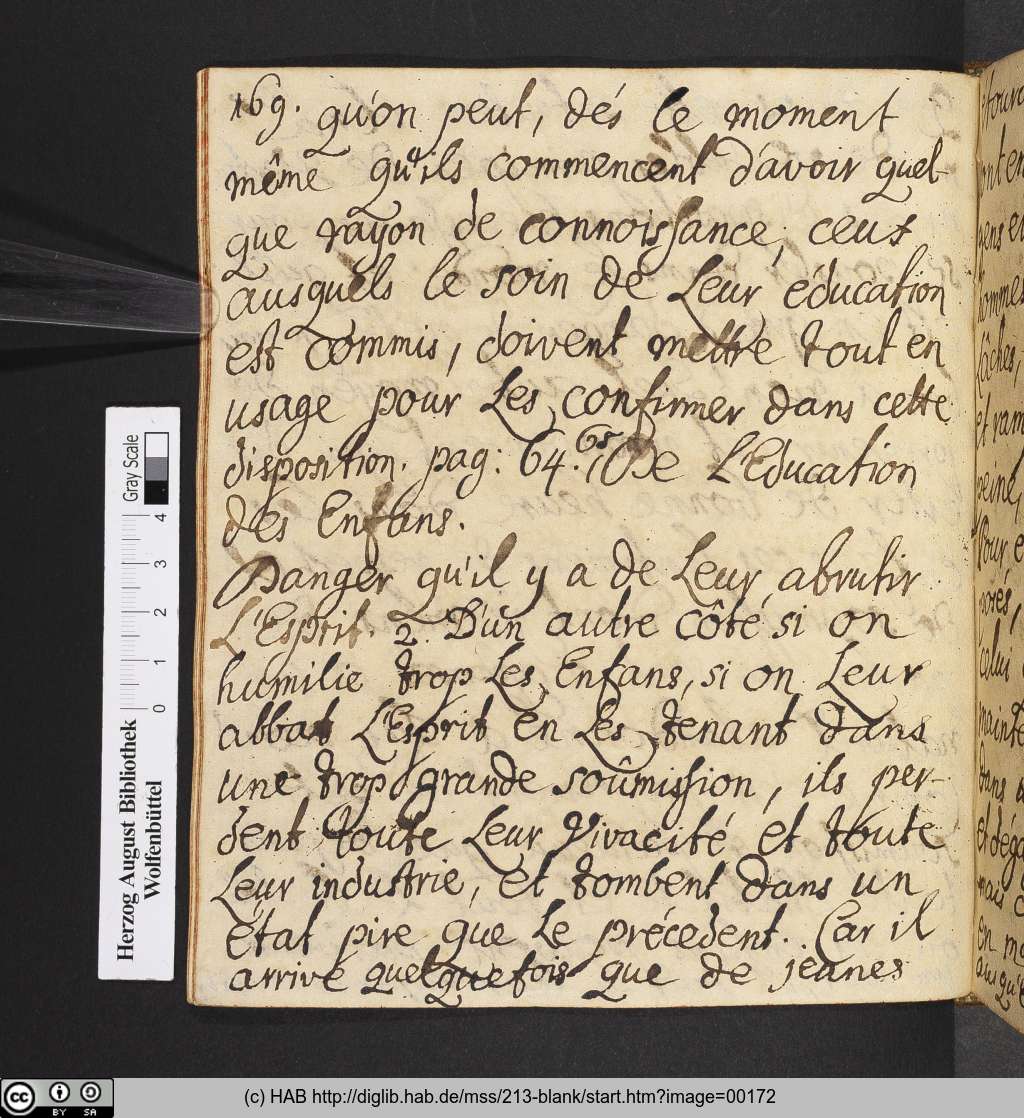 169. qu'on peut, dés le moment
même qu'ils commencent d'avoir quel-
que rayon de connoissance, ceux
ausquels le soin de Leur éducation
est commis, doivent mettre tout en
usage pour Les confirmer dans cette
disposition. pag: 64. 65 De L'Education
des Enfans.
Danger qu'il y a de Leur abrutir
L'Esprit. 2. D'un autre côté si on
humilie trop Les Enfans, si on Leur
abbat L'Esprit en Les tenant dans
une trop grande soûmission, ils per-
dent toute Leur Vivacité et toute
Leur industrie, et tombent dans un
état pire que Le précedent. Car il
arrive quelquefois que de jeunes
étour
ont en
gens et
hommes
lâches,
et ram
peine,
Pour e
prés,
celui
mainte
dans
et déga
mais
en m
ausqu'
Gray Scale
4
3
2
1
0
Herzog August Bibliothek
Wolfenbüttel
cc BY SA
(c) HAB http://diglib.hab.de/mss/213-blank/start.htm?image=00172